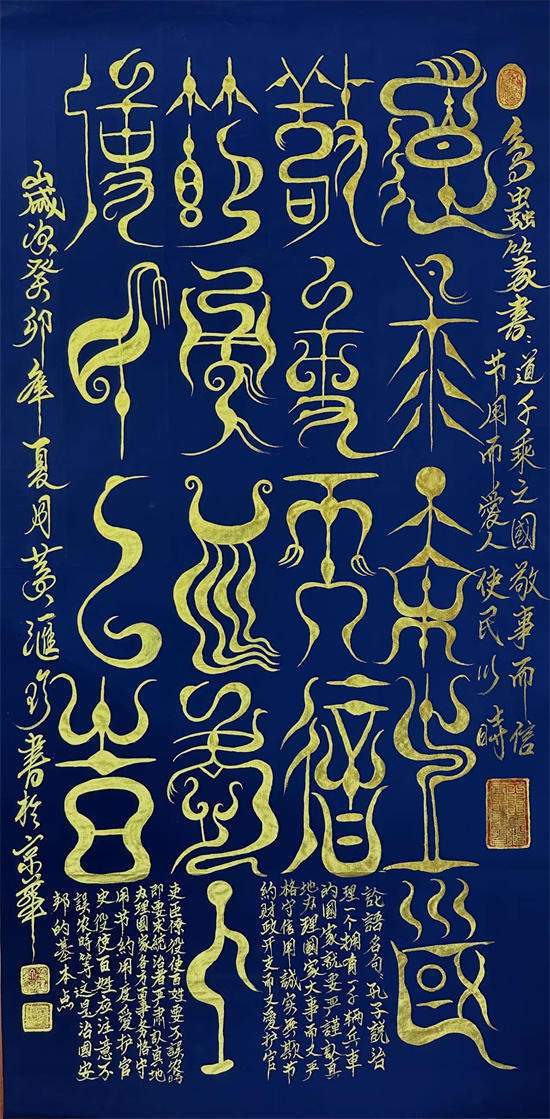 鸟蟲篆書：道千乘之國敬事而信
节用而愛人使民以時
道千乘之國
敬事而信
節用而愛人
使民以時
论語名句：孔子说治
理一个拥有一千辆兵車
的国家就要严謹认真
地办理国家大事而又严
格守信用誠实無欺节
約财政开支而又爱护官
吏臣僚役使百姓要不误农時
即要求统治者严肃认真地
办理国家各方面事务恪守
用节約用度爱护官
史役使百姓应注意不
误农時等这是治国安
邦的基本点
歲次癸卯年夏月黄滙珍書於京華